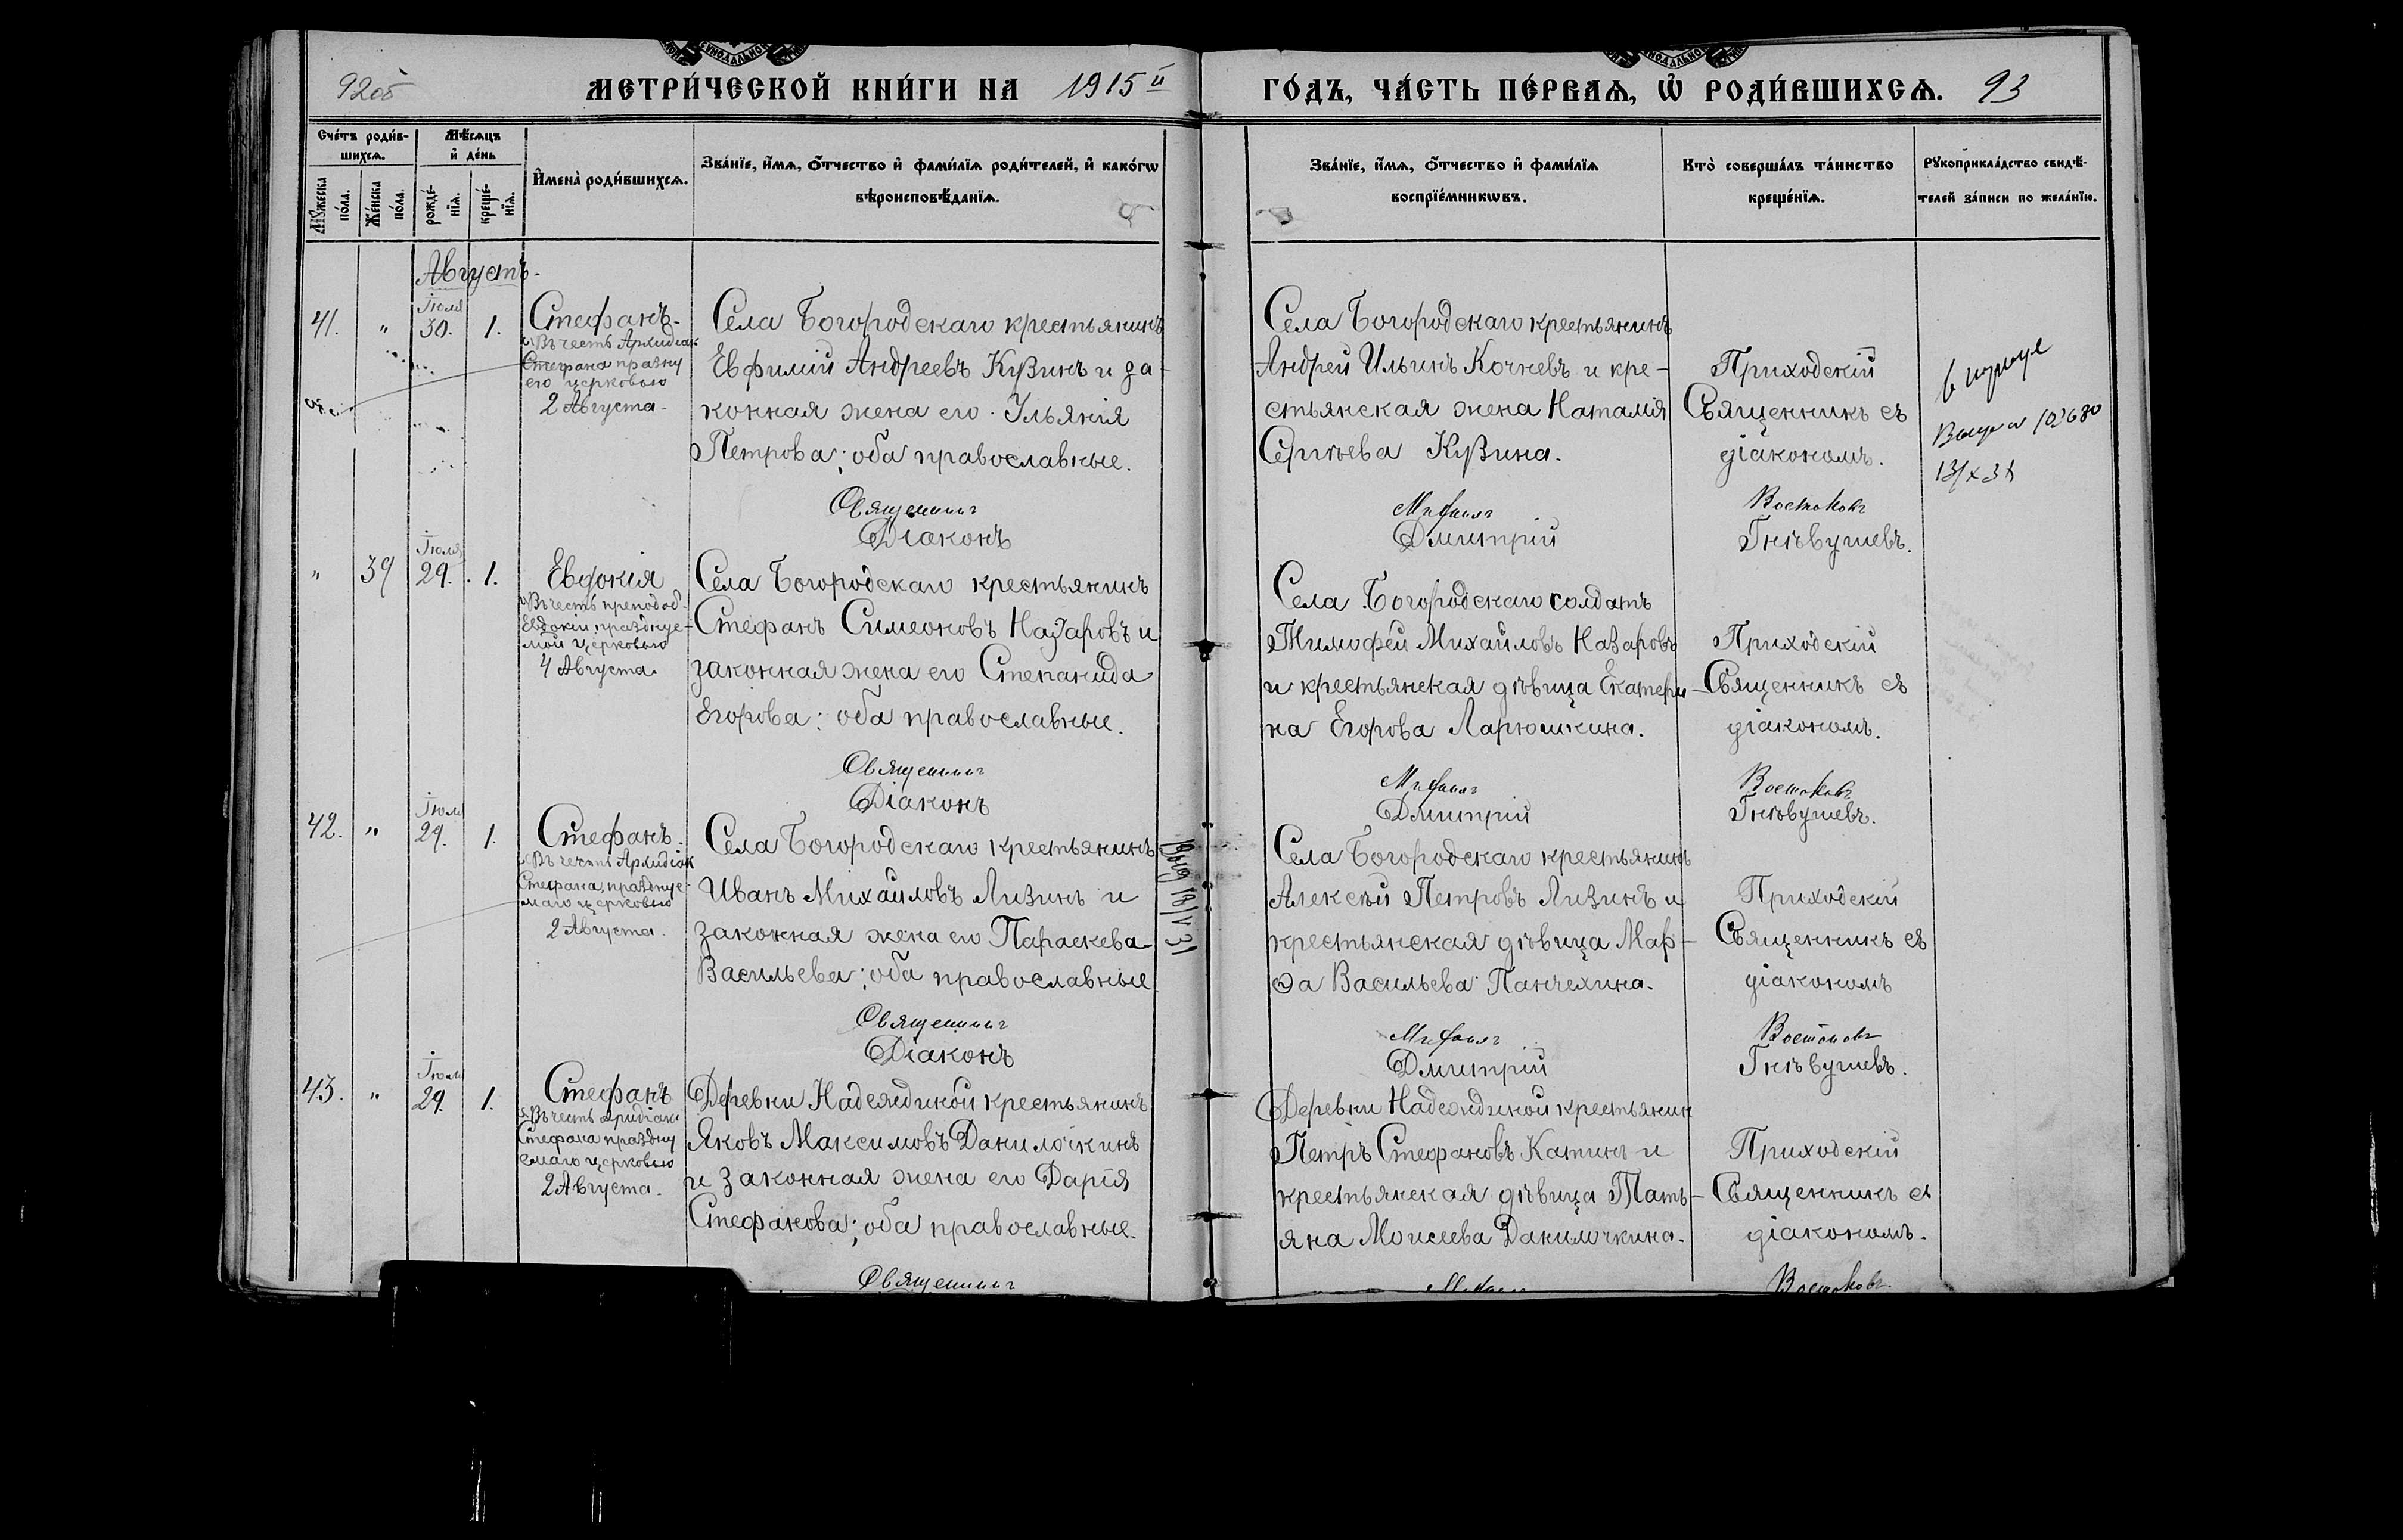 92об
МЕТРИ́ЧЕСКОЙ КНИ́ГИ НА 1915й
ГО́ДЪ, ЧА́СТЬ ПЕ́РВАѦ, Ѡ҆ РОДИ́ВШИХСѦ. 93
Сче́тъ роди́в-
шихсѧ.
Мꙋ́жеска
по́ла.
Же́нска
по́ла.
Мѣ́сѧцъ
и҆ де́нь
рожде́-
нїѧ.
креще́-
нїѧ.
И҆мена̀ роди́вшихсѧ.
Зва́нїе, и҆́мѧ, ѻ҆́тчество и҆ фами́лїѧ роди́телей, и҆ како́гѡ
вѣроисповѣ́данїѧ.
Зва́нїе, и҆́мѧ, ѻ҆́тчество и҆ фами́лїѧ
воспрїе́мникѡвъ.
Кто̀ соверша́лъ та́инство
креще́нїѧ.
Рꙋкоприкла́дство свидѣ́-
телей за́писи по жела́нїю.
Августъ.
41.
"
Іюля
30.
1.
Стефанъ.
Въ честь Архидіак
Стефана праздну
его церковью
2 Августа.
Села Богородскаго крестьянинъ
Евфимій Андреевъ Кузинъ и за-
конная жена его Ульянія
Петрова; оба православные.
Села Богородскаго крестьянинъ
Андрей Ильинъ Кочневъ и кре-
стьянская жена Наталія
Сергѣева Кузина.
Приходскій
Священникъ съ
діакономъ.
Священникъ
Діаконъ
Михаилъ
Дмитрій
Востоковъ
Гнѣвушевъ.
"
39
Іюля
29.
1.
Евдокія
Въ честь преподоб.
Евдокіи, празднуе-
мой церковью
4 Августа.
Села Богородскаго крестьянинъ
Стефанъ Симеоновъ Назаровъ и
законная жена его Степанида
Егорова; оба православные.
Села Богородскаго солдатъ
Тимофей Михайловъ Назаровъ
и крестьянская дѣвица Екатери-
на Егорова Ларюшкина.
Приходскій
Священникъ съ
діакономъ.
Священникъ
Діаконъ
Михаилъ
Дмитрій
Востоковъ
Гнѣвушевъ.
42.
"
Іюля
29.
1.
Стефанъ.
Въ честь Архидіак
Стефана, празднуе-
маго церковью
2 Августа.
Села Богородскаго крестьянинъ
Иванъ Михайловъ Лизинъ и
законная жена его Параскева
Васильева; оба православные.
Выд 18/V 31
Села Богородскаго крестьянинъ
Алексѣй Петровъ Лизинъ и
крестьянская дѣвица Мар-
ѳа Васильева Панчехина.
Приходскій
Священникъ съ
діакономъ
Священникъ
Діаконъ
Михаилъ
Дмитрій
Востоковъ
Гнѣвушевъ.
43.
"
Іюля
29.
1.
Стефанъ
Въ честь архидіак.
Стефана праздну
емаго церковью
2 Августа.
Деревни Надеждиной крестьянинъ
Яковъ Максимовъ Данилочкинъ
и законная жена его Дарія
Стефанова; оба православные.
Деревни Надеждиной крестьянин
Петръ Стефановъ Катинъ и
крестьянская дѣвица Тать-
яна Моисеева Данилочкина.
Приходскій
Священникъ съ
діакономъ.
Священникъ
Михаилъ
Востоковъ